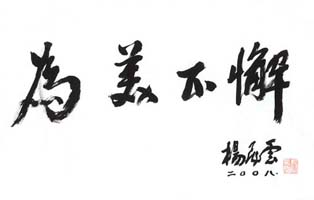 為美不懈
楊飛雲
二〇〇八.